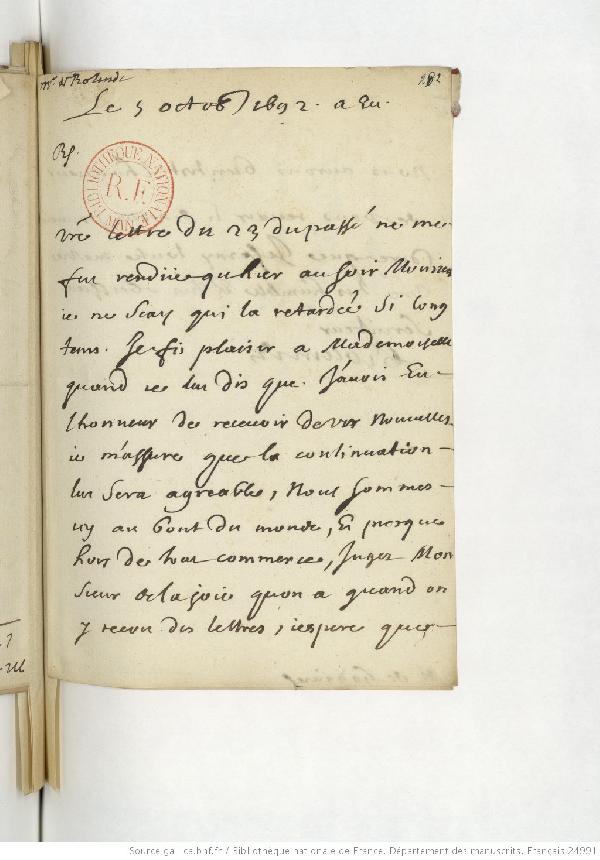 282
Le 5 octob 1692. a Eu.
Rs.
BIBLIOTHEQUE NATIONALE MAN
R.F.
vre lettre du 23 du passé ne me
fut rendüe qu'hier au soir Monsieur
ie ne scay qui la retardée si long
tems. Je fis plaisir a Mademoiselle
quand ie luy dis que J'avois Eu
lhonneur de recevoir de vos nouvelles
ie m'assure que la continuation
luy sera agreable, Nous sommes
icy au bout du monde, Et presque
hors de tout commerce, Jugez Mon
sieur de la joie quon a quand on
y recoit des lettres, iespere que
Source gallica.bnf.fr / Bibliothèque nationale de France. Département des manuscrits. Français 24991